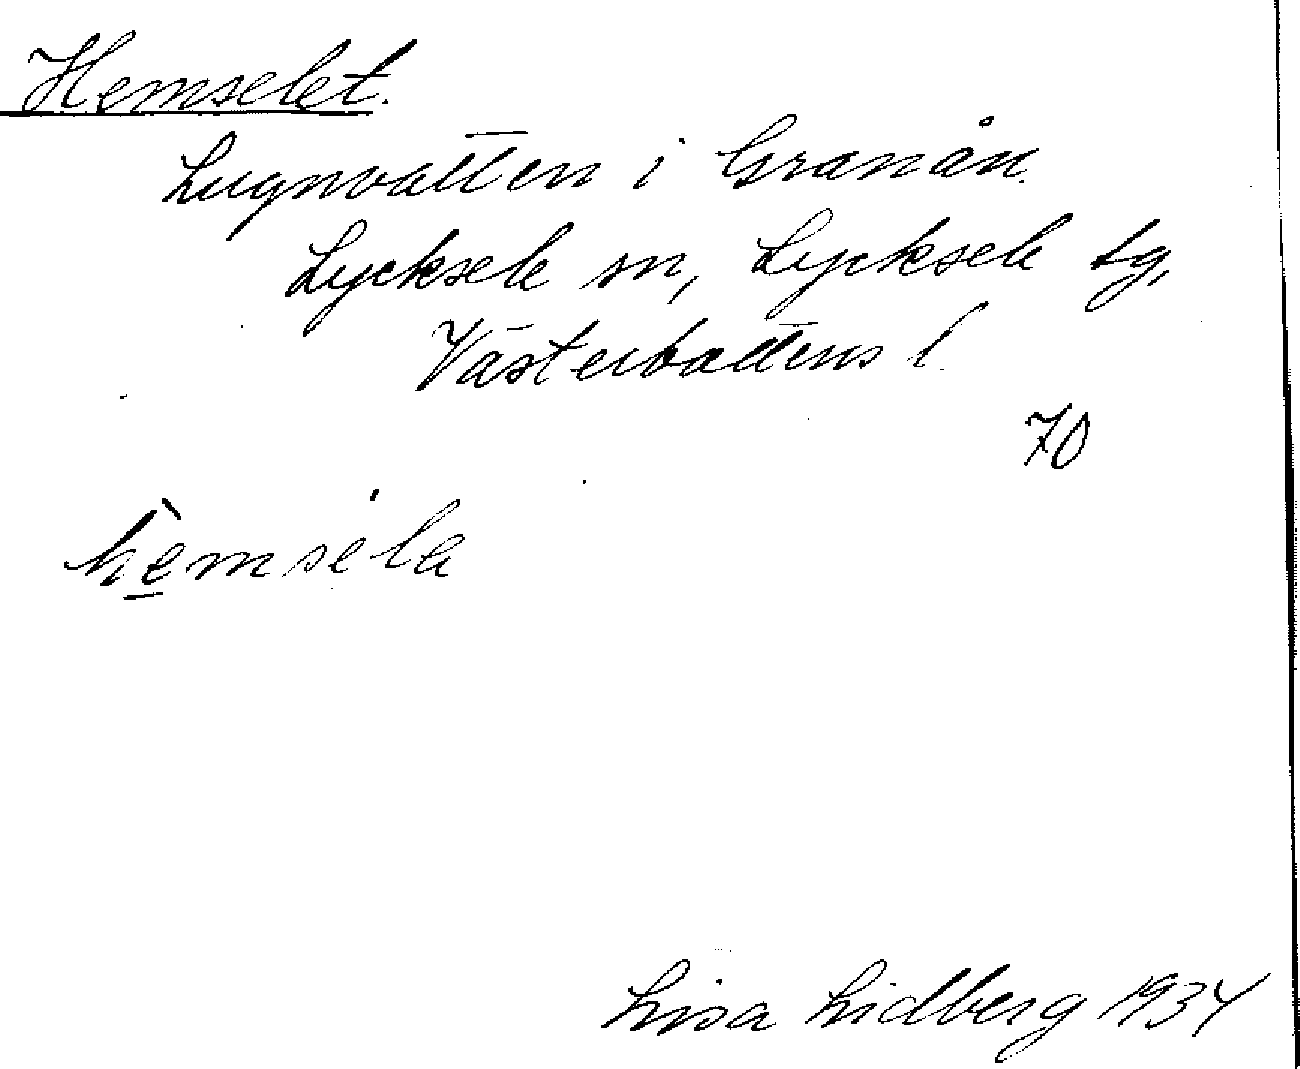 Hemselet.
Lugnvatten i Granån.
Lycksele sn, Lycksele tg,
Västerbottens l.
70
hèmsela
Lisa Lidberg 1934